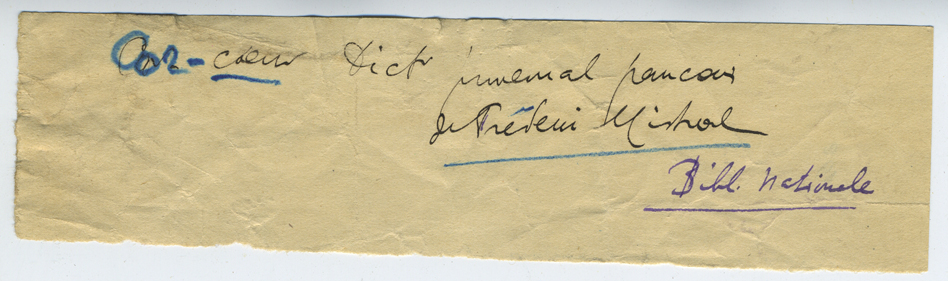 Cor - coeur Dictr provençal francais
de Frédéric Mistral
Bibl. Nationale